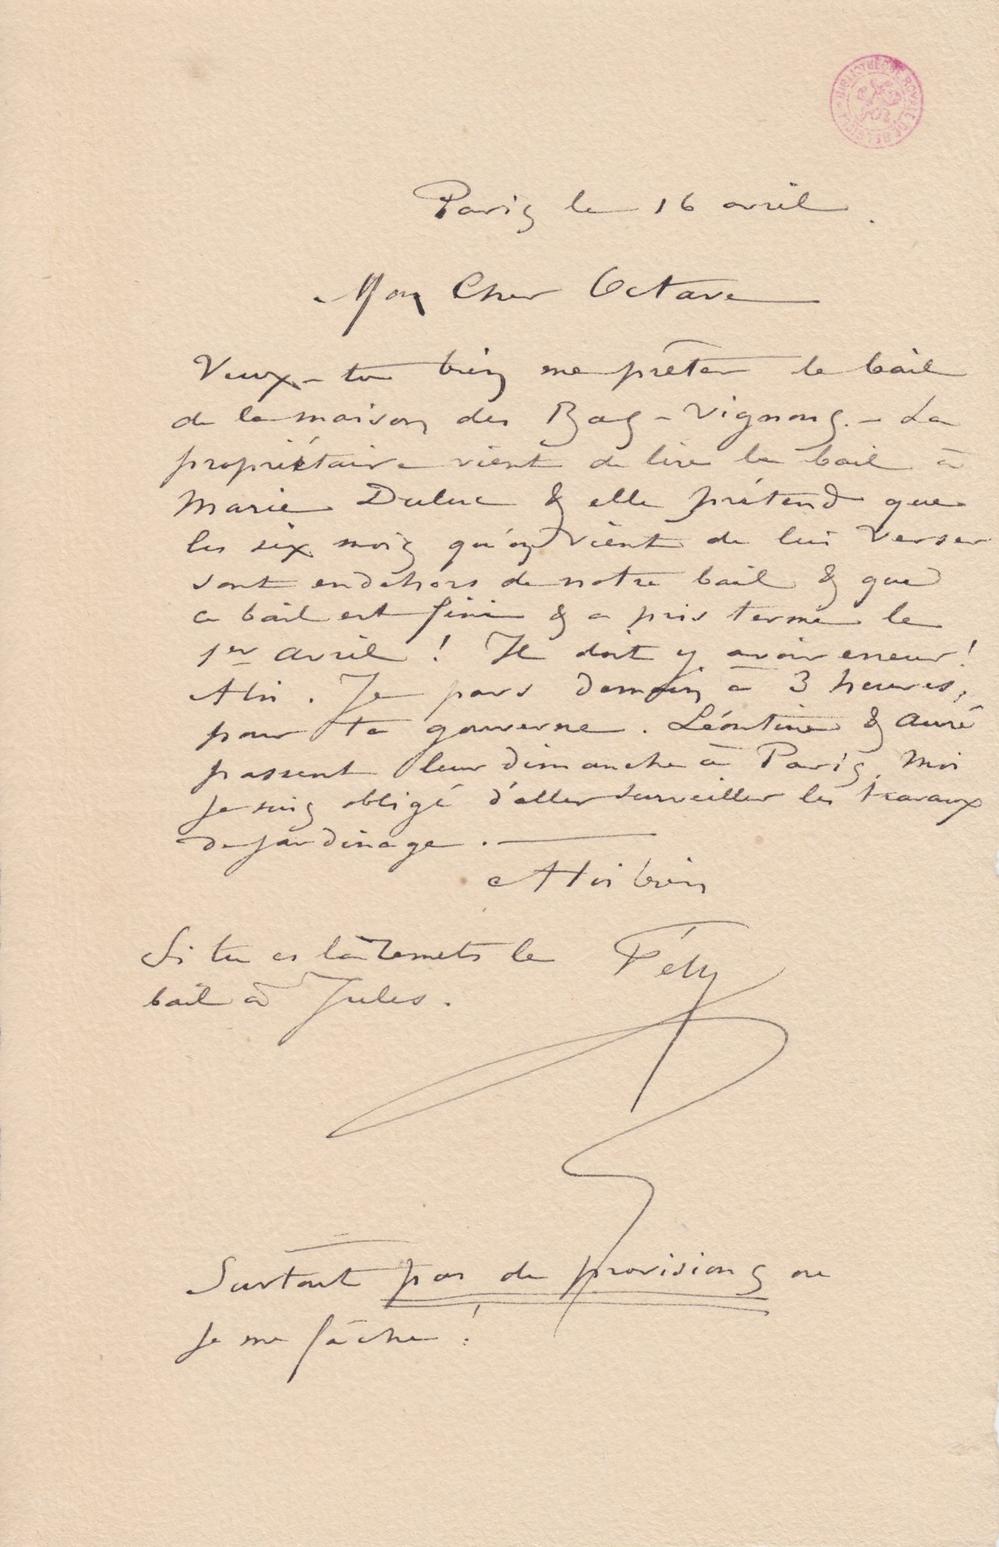 BIBLIOTHÈQUE ROYALE DE BELGIQUE
Paris le 16 avril.
Mon Cher Octave
Veux-tu bien me prêter le bail
de la maison des Bas-Vignons. - La
propriétaire vient de lire le bail à
Marie Duluc & elle prétend que
les six mois qu'on vient de lui verser
sont endehors de notre bail & que
ce bail est fini & a pris terme le
1er avril ! Il doit y avoir erreur !
A toi. Je pars demain à 3 heures,
pour ta gouverne. Léontine & Auré
passent leur dimanche à Paris. Moi
je suis obligé d'aller surveiller les travaux
de jardinage.
A toi bien
Si tu es là remets le
bail à Jules.
Fély
Surtout pas de provisions ou
je me fâche !